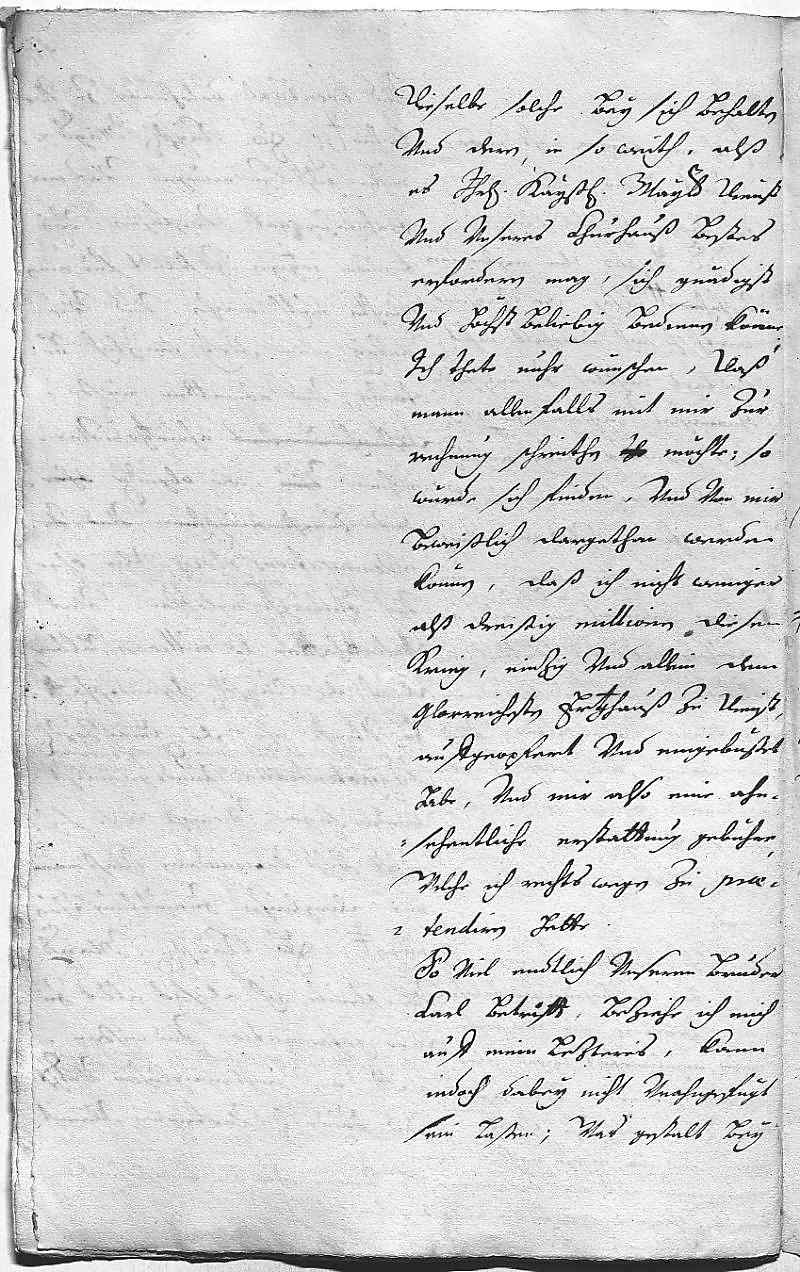 Dieselbe solche bey sich behalten
Und deren, in so weith, alß
es Ihr. Kaysl. Mayt. Dienst
Und Unseres Churhauß bestes
erfordern mag, sich gnädigst
Und höchst beliebig bedienen könne,
Ich thete nuhr wünschen, daß
mann allenfalls mit mir zur
rechnung schreithen möchte; so
würde sich finden, Und Von mir
beweißlich dargethan werden
können, daß ich nicht weniger
alß dreisig millionen diesen
Krieg, eintzig Und allein dem
Glorreichsten Ertzhauß zu Dienst,
auffgeopfert Und eingebüßet
habe, Und mir also eine ahn-
sehentliche erstattung gebühre,
Welche ich rechts wegen zu præ-
tendiren hette.
So Viel endtlich Unseren bruder
Carl betrifft, beziehe ich mich
auff mein letzteres, kann
iedoch dabey nicht Unahngefügt
sein laßen; Was gestalt bey